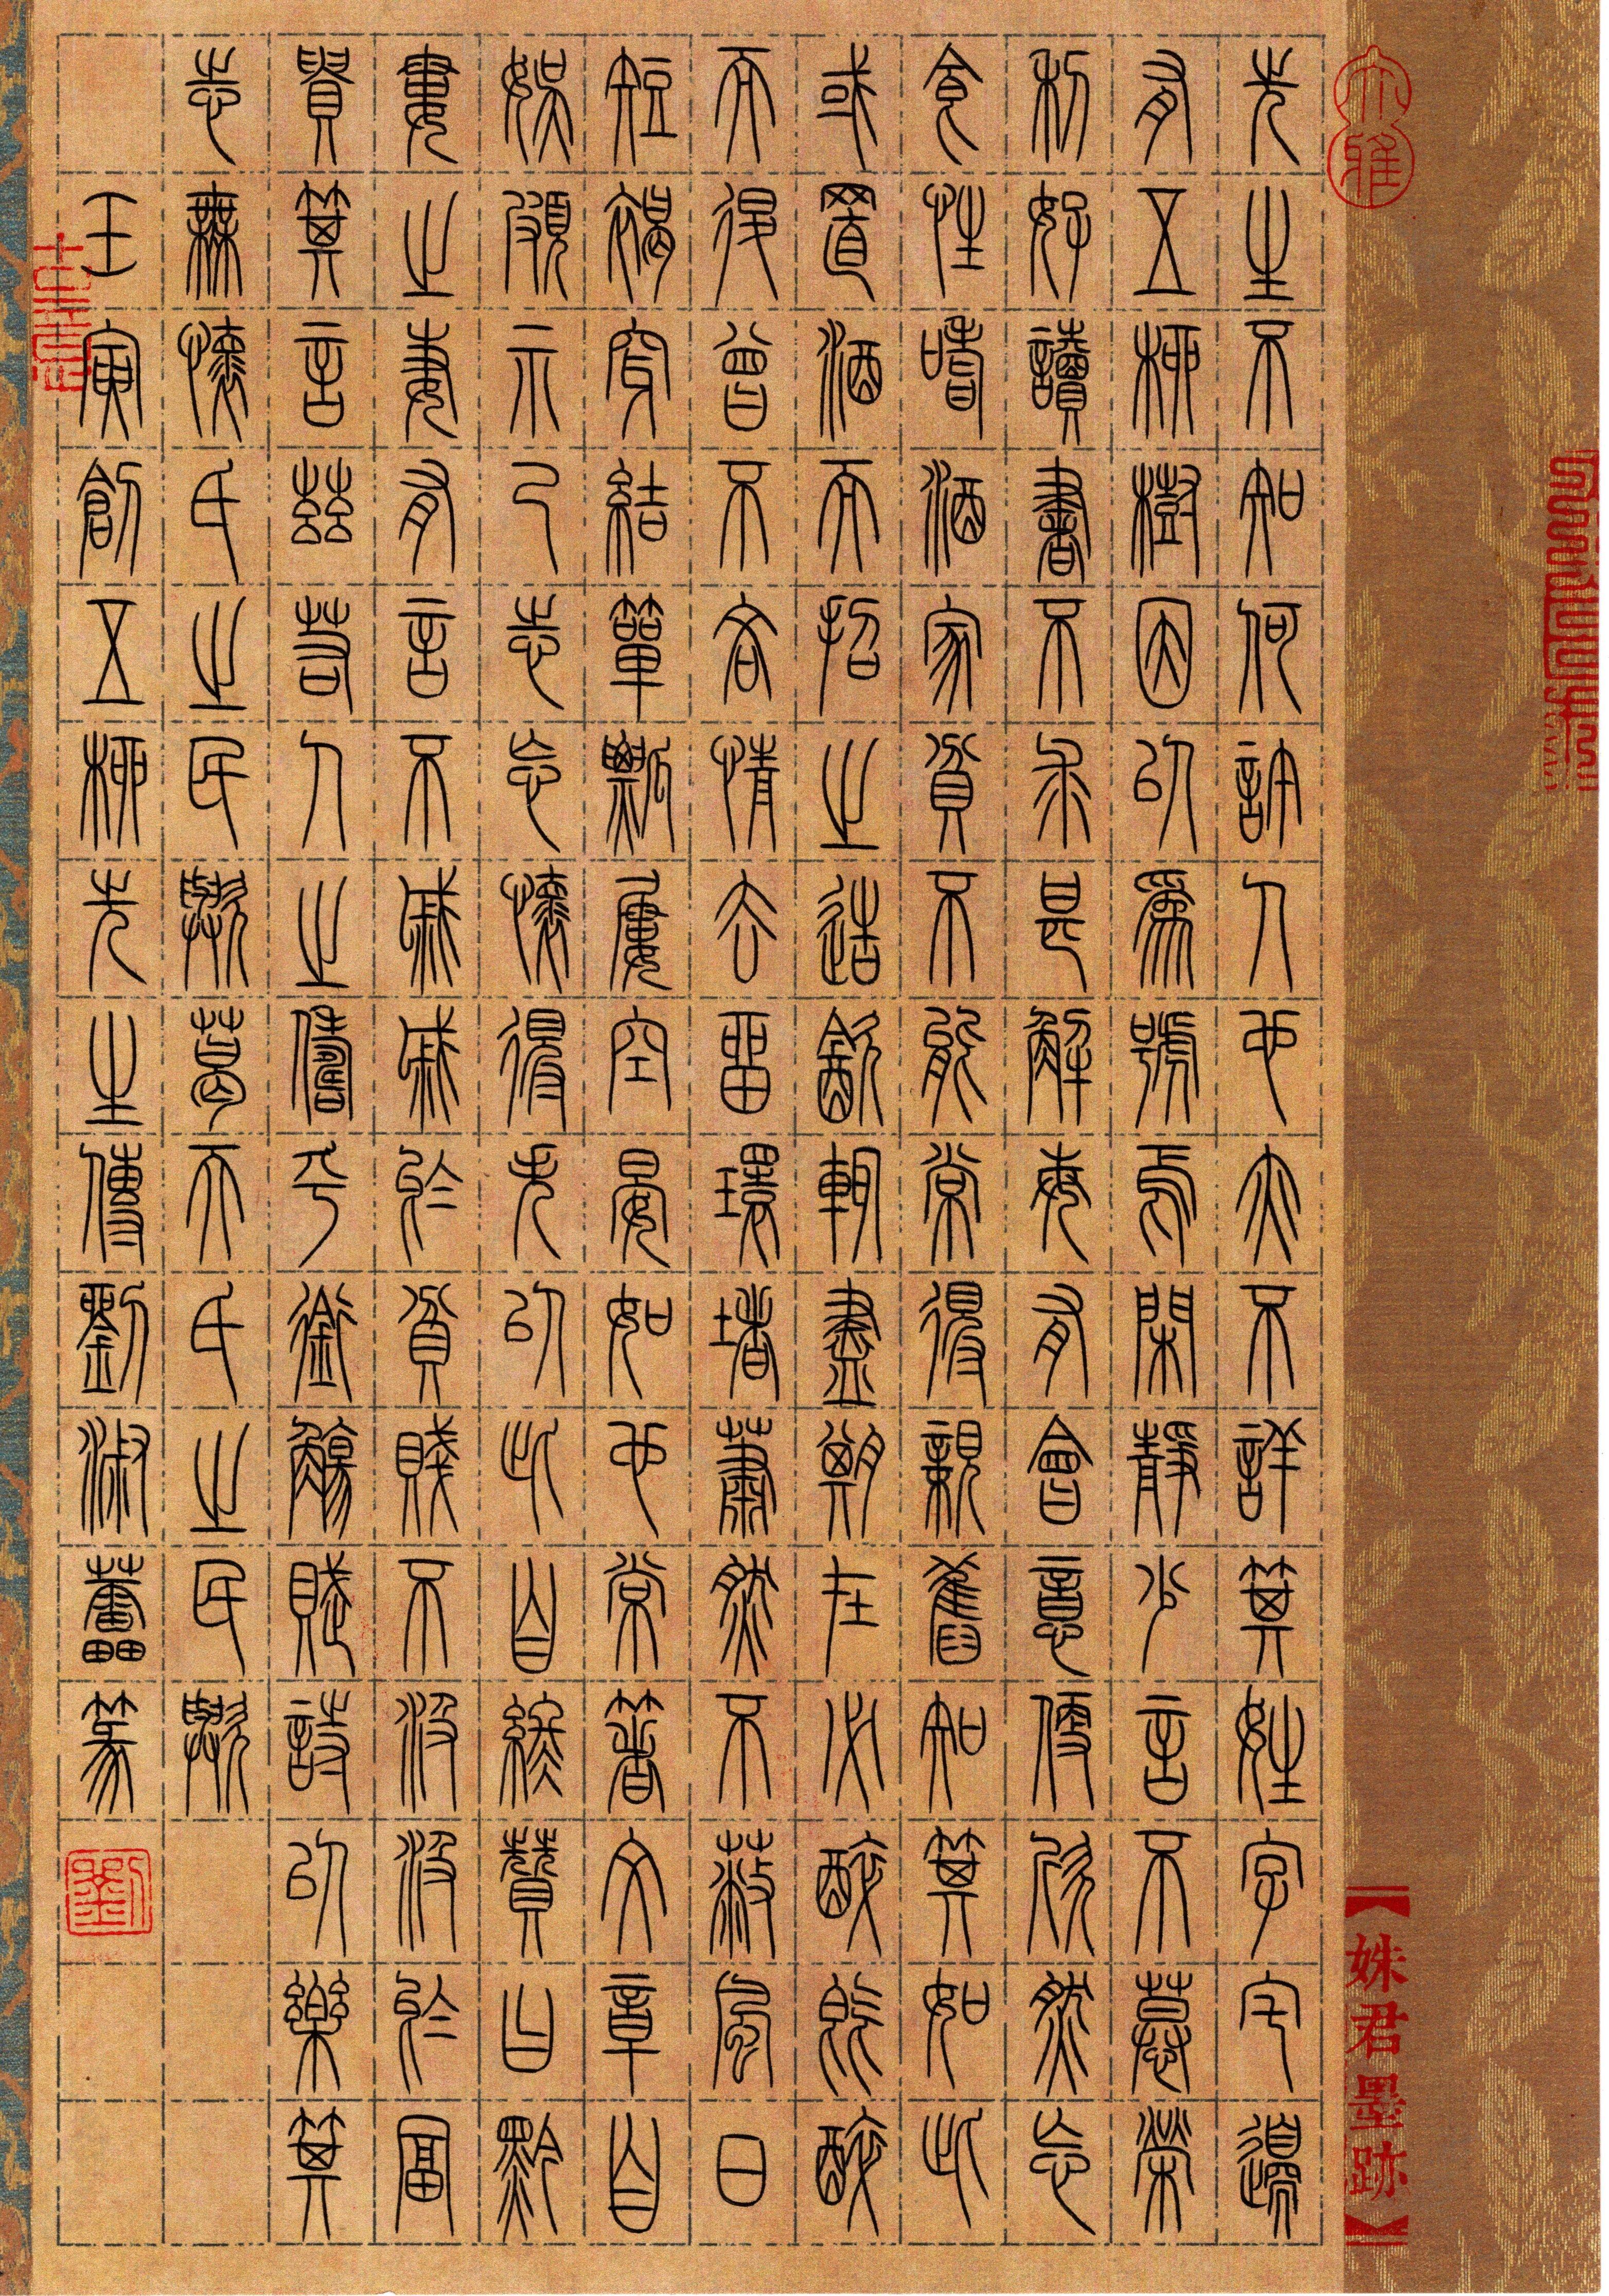 大雅
先生不知何許人也亦不詳其姓字宅邊
有五柳樹因以為號焉閑靜少言不慕榮
利好讀書不求甚解每有會意便欣然忘
食性嗜酒家貧不能常得親舊知其如此
或置酒而招之造飲輒盡期在必醉既醉
而退曾不吝情去留環堵蕭然不蔽風日
短褐穿結簞瓢屢空晏如也常著文章自
娛頗示己志忘懷得失以此自終贊曰黔
婁之妻有言不戚戚於貧賤不汲汲於富
貴其言茲若人之儔乎銜觴賦詩以樂其
志無懷氏之民歟葛天氏之民歟
壬寅創五柳先生傳劉淑蕾篆
劉
【姝君墨跡】